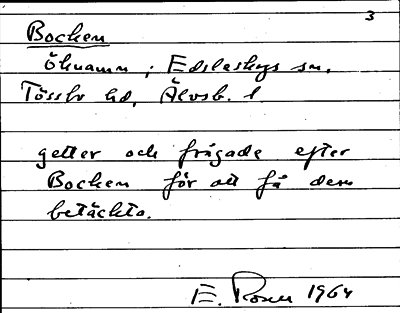 3
Bocken
Öknamn i Edsleskogs sn,
Tössbo hd, Älvsb. l
getter och frågade efter
Bocken för att få dem
betäckta.
E. Rosén 1964